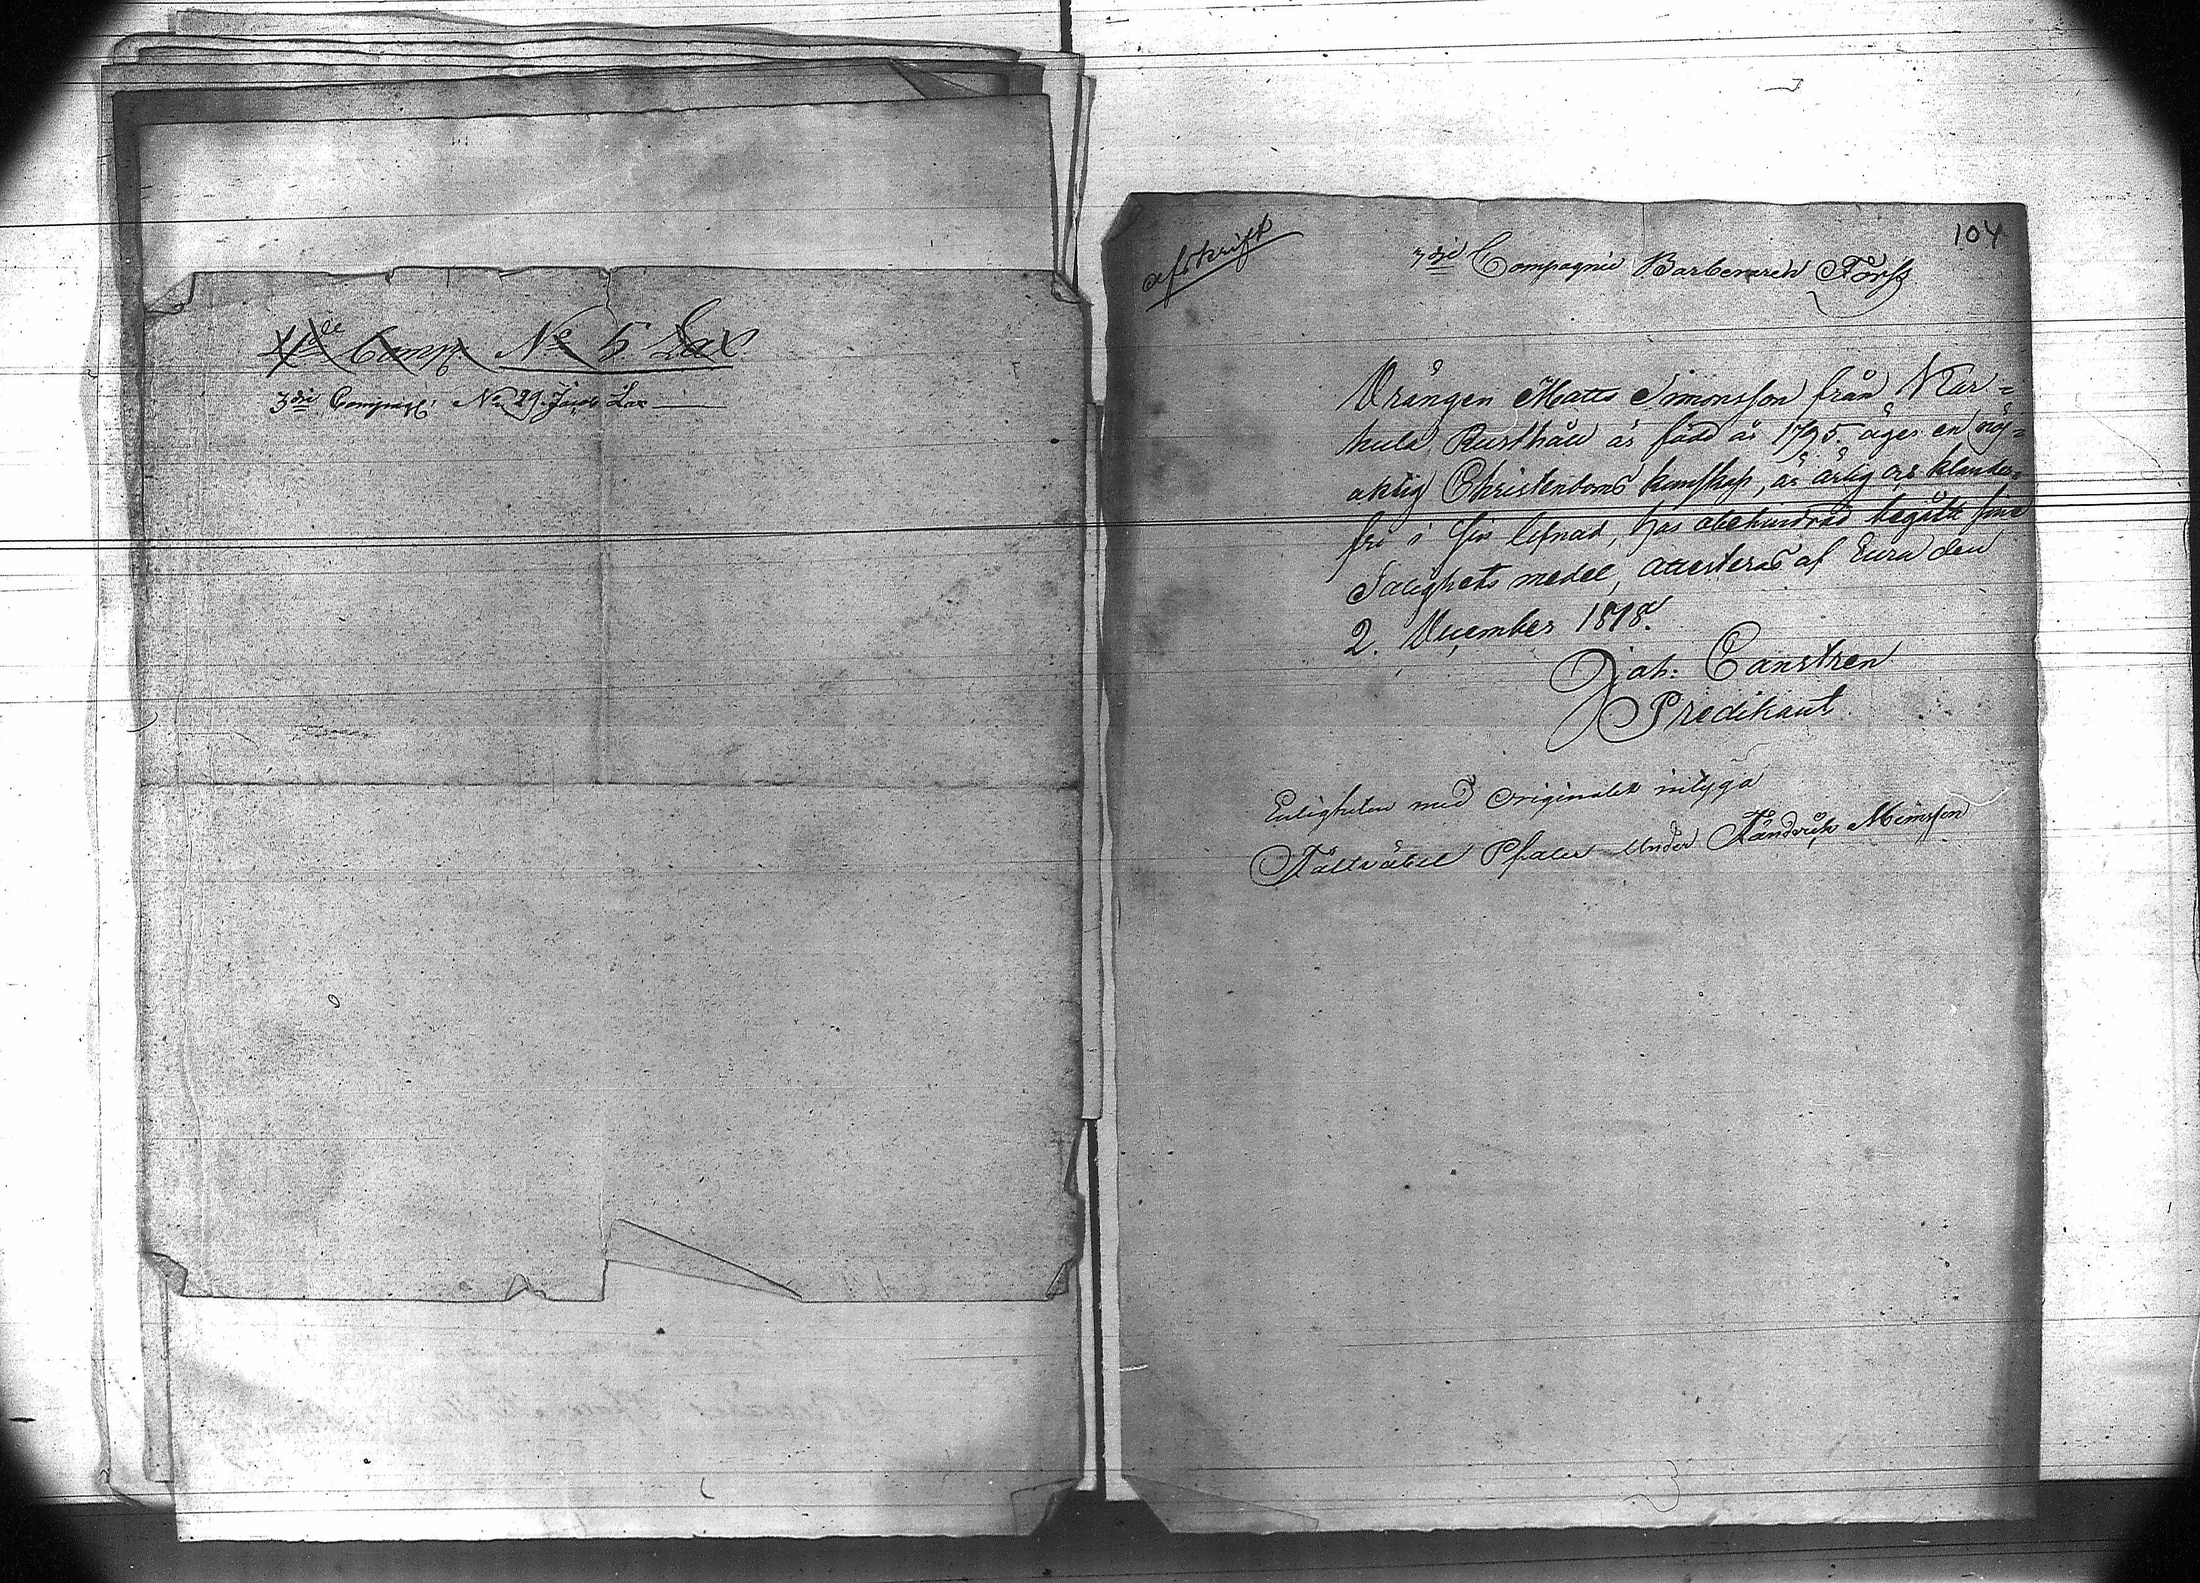 4de Comp. No 5 Lax
3die Compagi No 29. Jacob Lax
104
afskrift
3die Compagnie Barberaren Förss
Drängen Matts Simonsson från Kar=
hula Rusthåll är född år 1795. äger en nöj=
aktig Christendoms kunskap, är ärlig ock klander=
fri i sin lefnad, har obehindrad begått sine
Salighets medel, attesteras af Eura den
2. December 1818.
Joh: Canstren
Predikant
Enligheten med Originalet intyga
Fältväbel Under